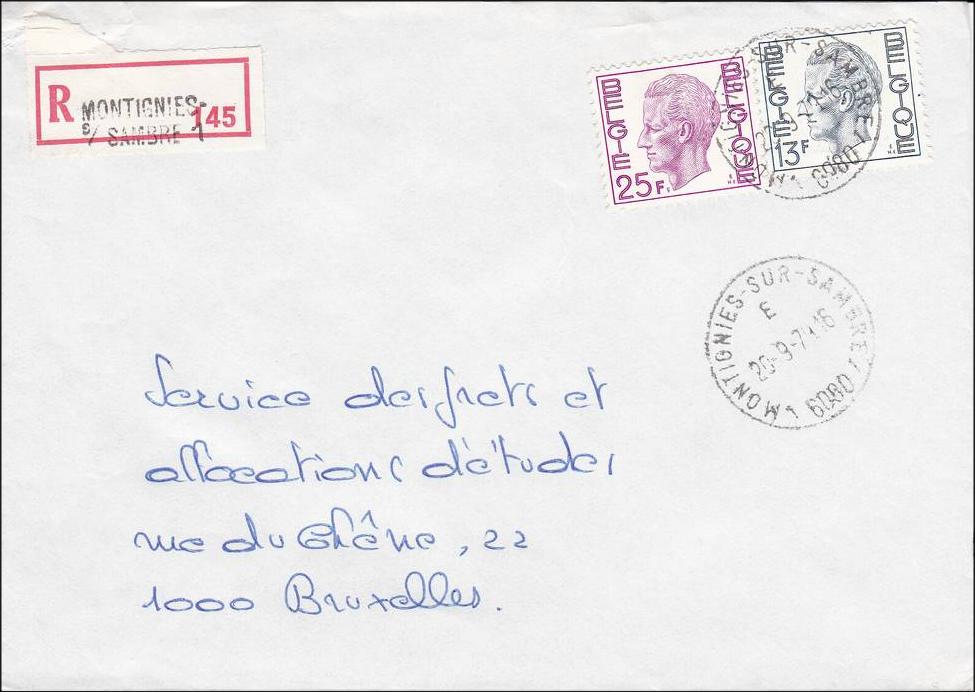 R MONTIGNIES-
S/ SAMBRE 1
145
BELGIE BELGIQUE
25F
BELGIE BELGIQUE
13F
MONTIGNIES-SUR-SAMBRE 1
E
6080
Service des prets et
allocations d'études
rue du Chêne, 22
1000 Bruxelles.